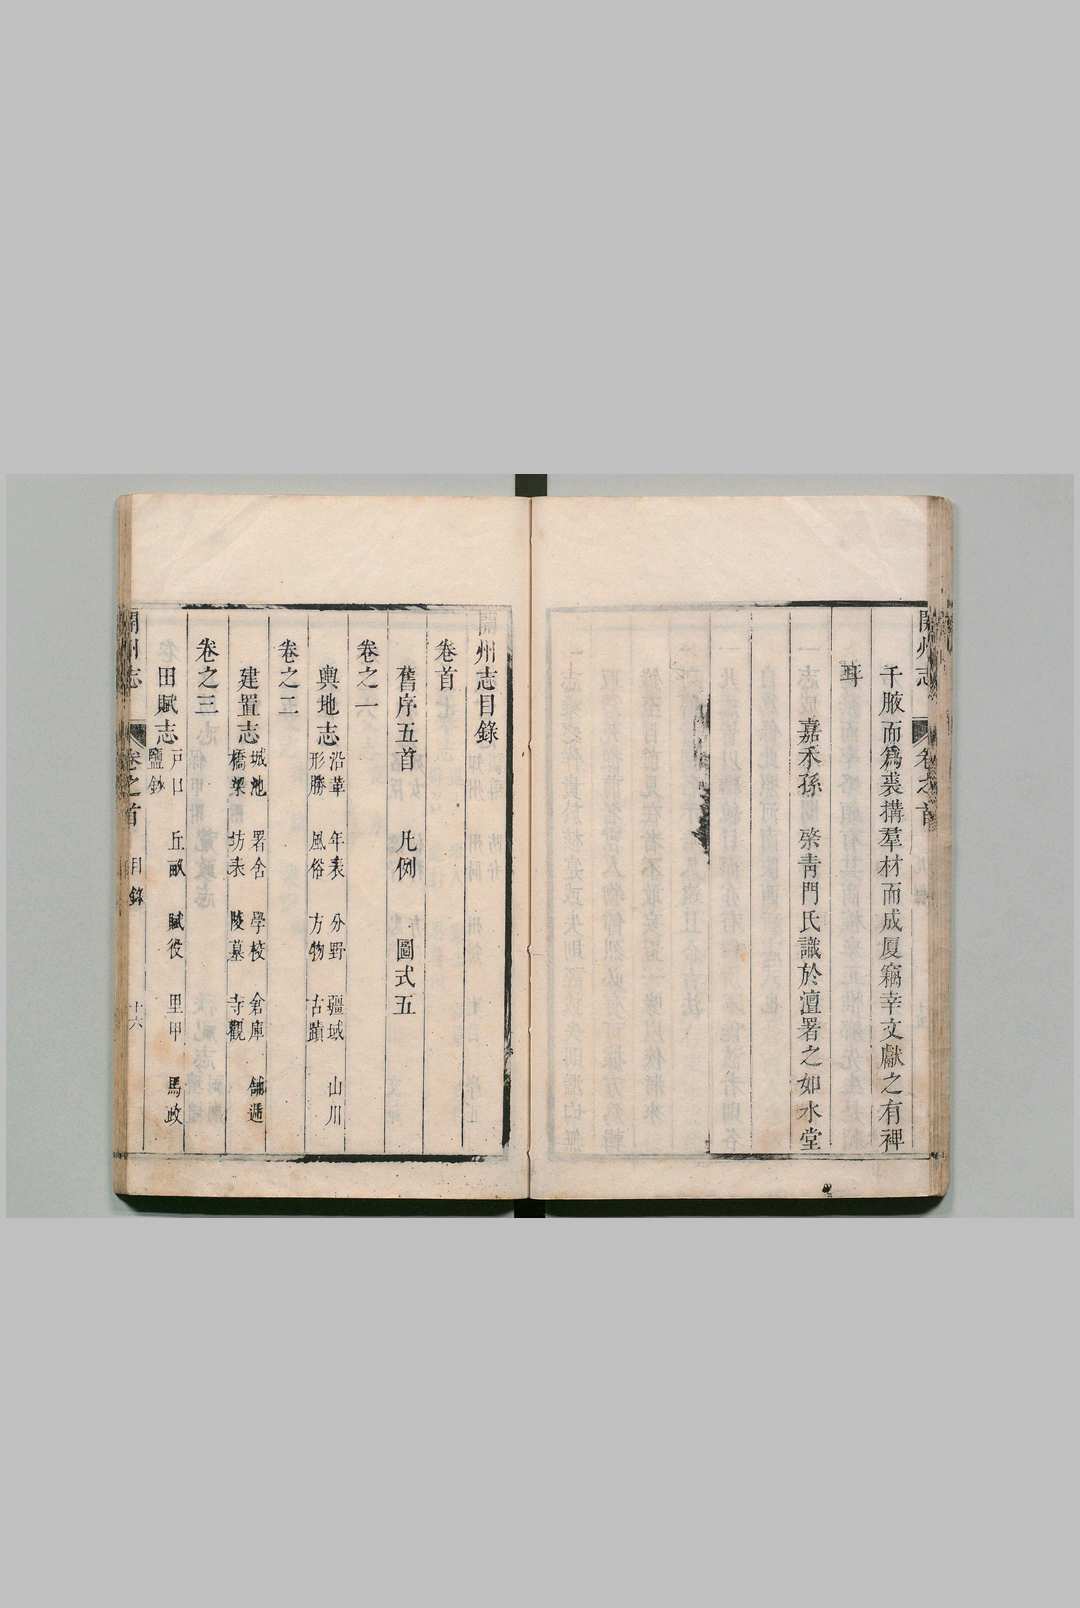 開州志 卷之首
千腋而為裘搆羣材而成厦竊幸文獻之有裨
耳
嘉禾孫 榮青門氏識於澶署之如水堂
開州志目錄
卷首
舊序五首 凡例 圖式五
卷之一
輿地志 沿革 年表 分野 疆域 山川
形勝 風俗 方物 古蹟
卷之二
建置志 城池 署舍 學校 倉庫 舖遞
橋梁 坊表 陵墓 寺觀
卷之三
田賦志 戸口 丘畝 賦役 里甲 馬政
鹽鈔
開州志 卷之首 目錄 十六